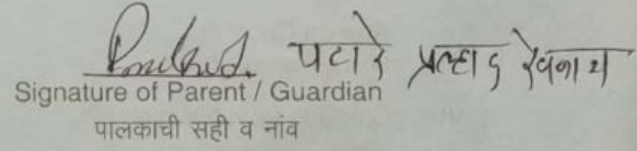 पटारे प्रल्हाद रेवनाथ
Signature of Parent / Guardian
पालकाची सही व नांव